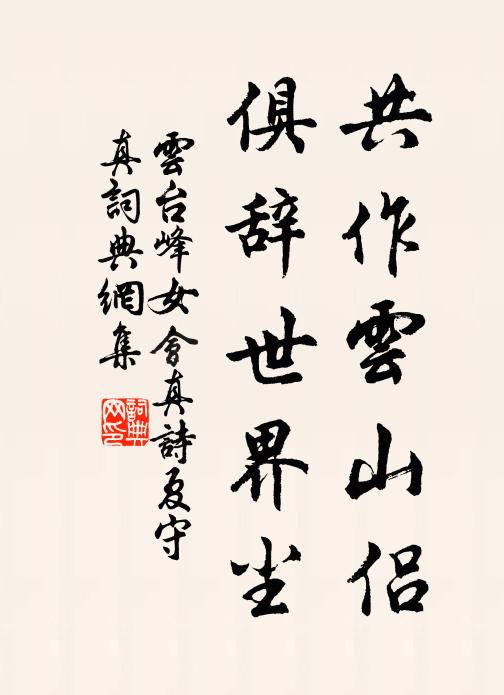 共作雲山侶
俱辞世界尘
雲台峰女會真詩夏守
真詞典網集
詞典
网印